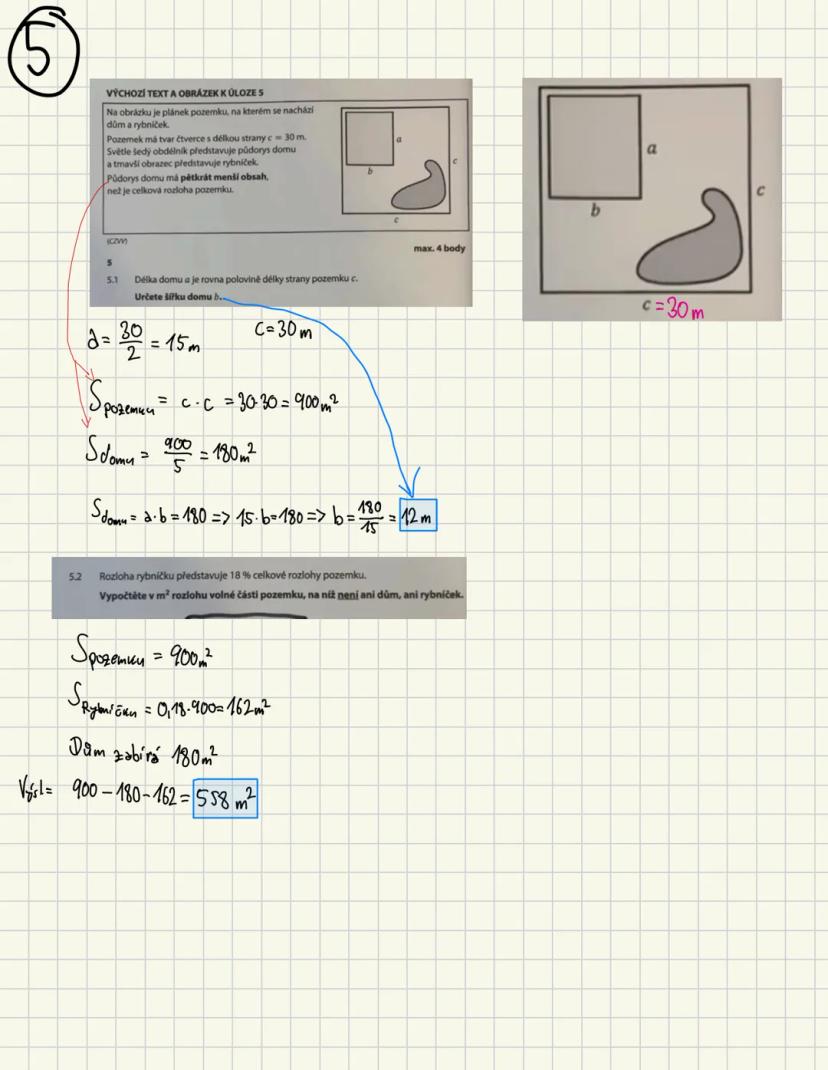 5
VÝCHOZÍ TEXT A OBRÁZEK K ÚLOZE 5
Na obrázku je plánek pozemku, na kterém se nachází
dům a rybníček.
Pozemek má tvar čtverce s délkou strany c = 30 m.
Světle šedý obdélník představuje půdorys domu
a tmavší obrazec představuje rybníček.
Půdorys domu má pětkrát menší obsah,
než je celková rozloha pozemku.
a
b
c
c
(CZVV)
max. 4 body
5
5.1 Délka domu a je rovna polovině délky strany pozemku c.
Určete šířku domu b.
a
b
c
c = 30 m
a = 30/2 = 15 m
c = 30 m
Spozemku = c · c = 30·30 = 900 m²
Sdomu = 900/5 = 180 m²
Sdomu = a·b = 180 => 15·b = 180 => b = 180/15 = 12 m
5.2 Rozloha rybníčku představuje 18 % celkové rozlohy pozemku.
Vypočtěte v m² rozlohu volné části pozemku, na níž není ani dům, ani rybníček.
Spozemku = 900 m²
SRybníčku = 0,18·900 = 162 m²
Dům zabírá 180 m²
Výsl = 900 – 180 – 162 = 558 m²